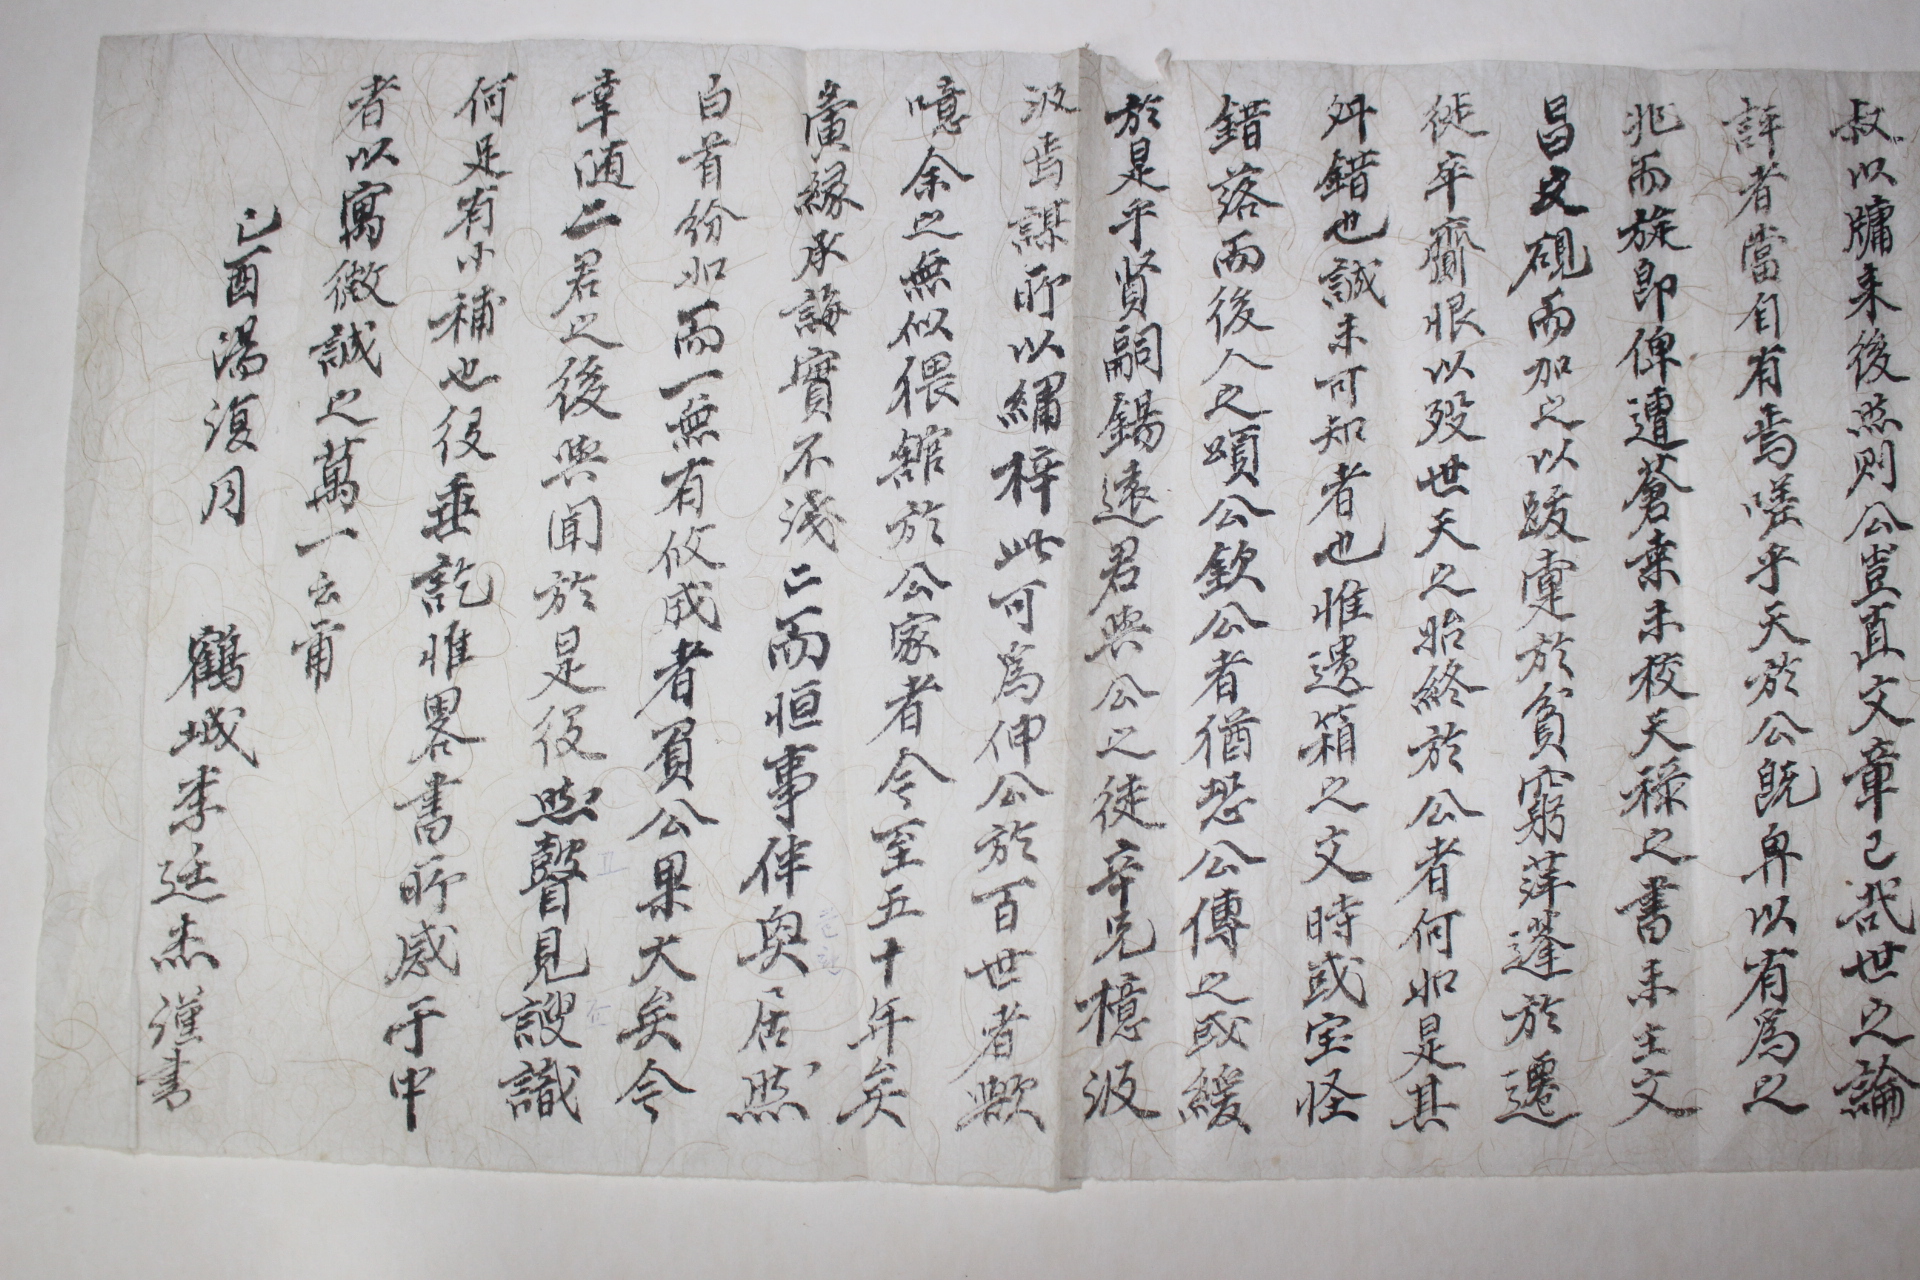 叔以牗來後然則公豈直文章已哉世之論
評者當自有焉嗟乎天於公旣畀以有爲之
兆而旋卽俾遭蒼桒未校天祿之書未主文
昌文硯而加之以跋疐於貧窮萍蓬於遷
徙卒齎恨以歿世天之始終於公者何如是其
舛錯也誠未可知者也惟遺箱之文時或宝怪
錯落而後人之頌公欽公者猶恐公傳之或緩
於是乎賢嗣錫遠君與公之徒辛兄檍汲
汲焉謀所以繡梓此可爲伸公於百世者歟
噫余之無似猥館於公家者今至五十年矣
夤緣承誨實不淺二而恒事伴奐居然
白首紛如而一無有攸成者負公果大矣今
幸随二君之後與聞於是役然瞽見謏識
何足有小補也役垂訖惟畧書所感于中
者以寓微誠之萬一云甭
己酉湯復月
鶴城李廷杰謹書